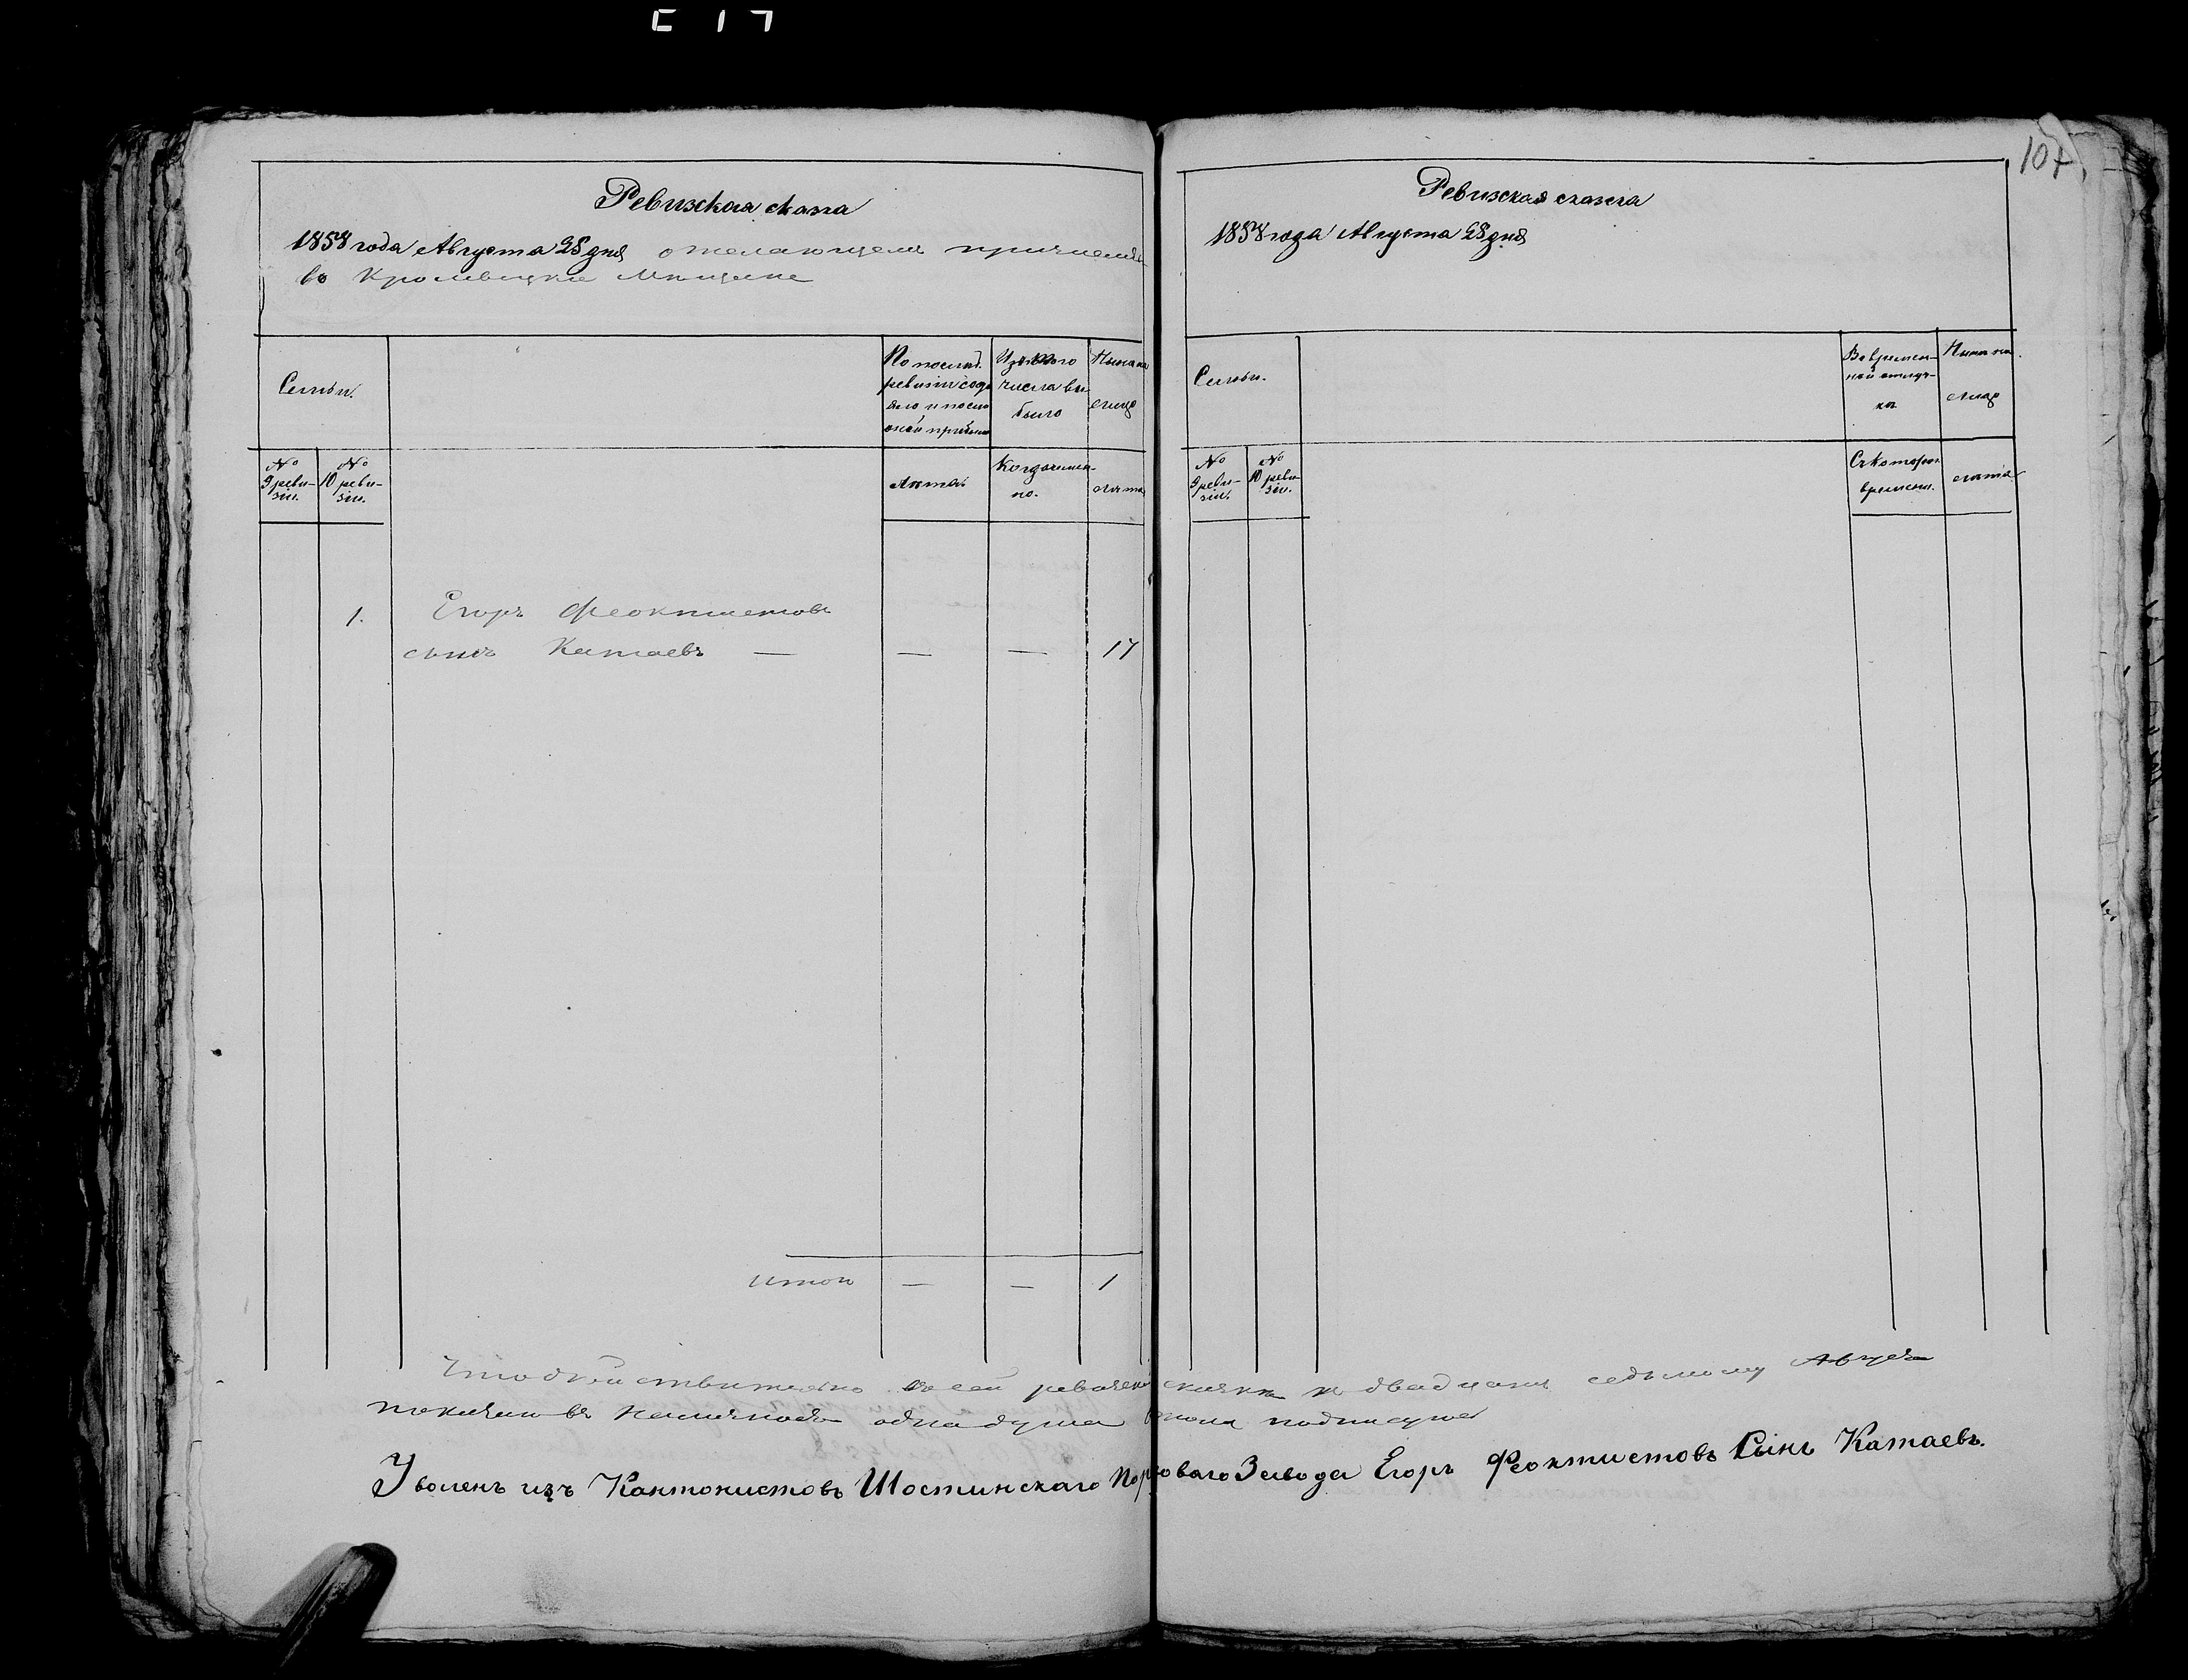 107.
Ревизская сказка
1858 года Августа 28 дня о желающемъ причислиться
въ Кролевецкіе Мѣщане
Семьи.
По послѣд.
ревизіи состо
яло и послѣ
оной прибыло
Изъ того
числа вы
было
Нынѣ на
лицо
№
9 реви-
зіи.
№
10 реви-
зіи.
Лѣта.
Когда имен-
но.
лѣта
1. Егоръ Феоктистовъ
сынъ Катаевъ — — — 17
Итого — — 1
Ревизская сказка
1858 года Августа 28 дня
Семьи.
Во времен-
ной отлуч-
кѣ
Нынѣ на
лицо
№
9 реви-
зіи.
№
10 реви-
зіи.
Съ котораго
времени.
лѣта
Что дѣйствительно въ сей ревизской сказкѣ къ двадцать седьмому Августа
показано въ наличности одна душа въ томъ подписуюсь
Уволенъ изъ Кантонистовъ Шостинскаго Пороховаго Завода Егоръ Феоктистовъ Сынъ Катаевъ.